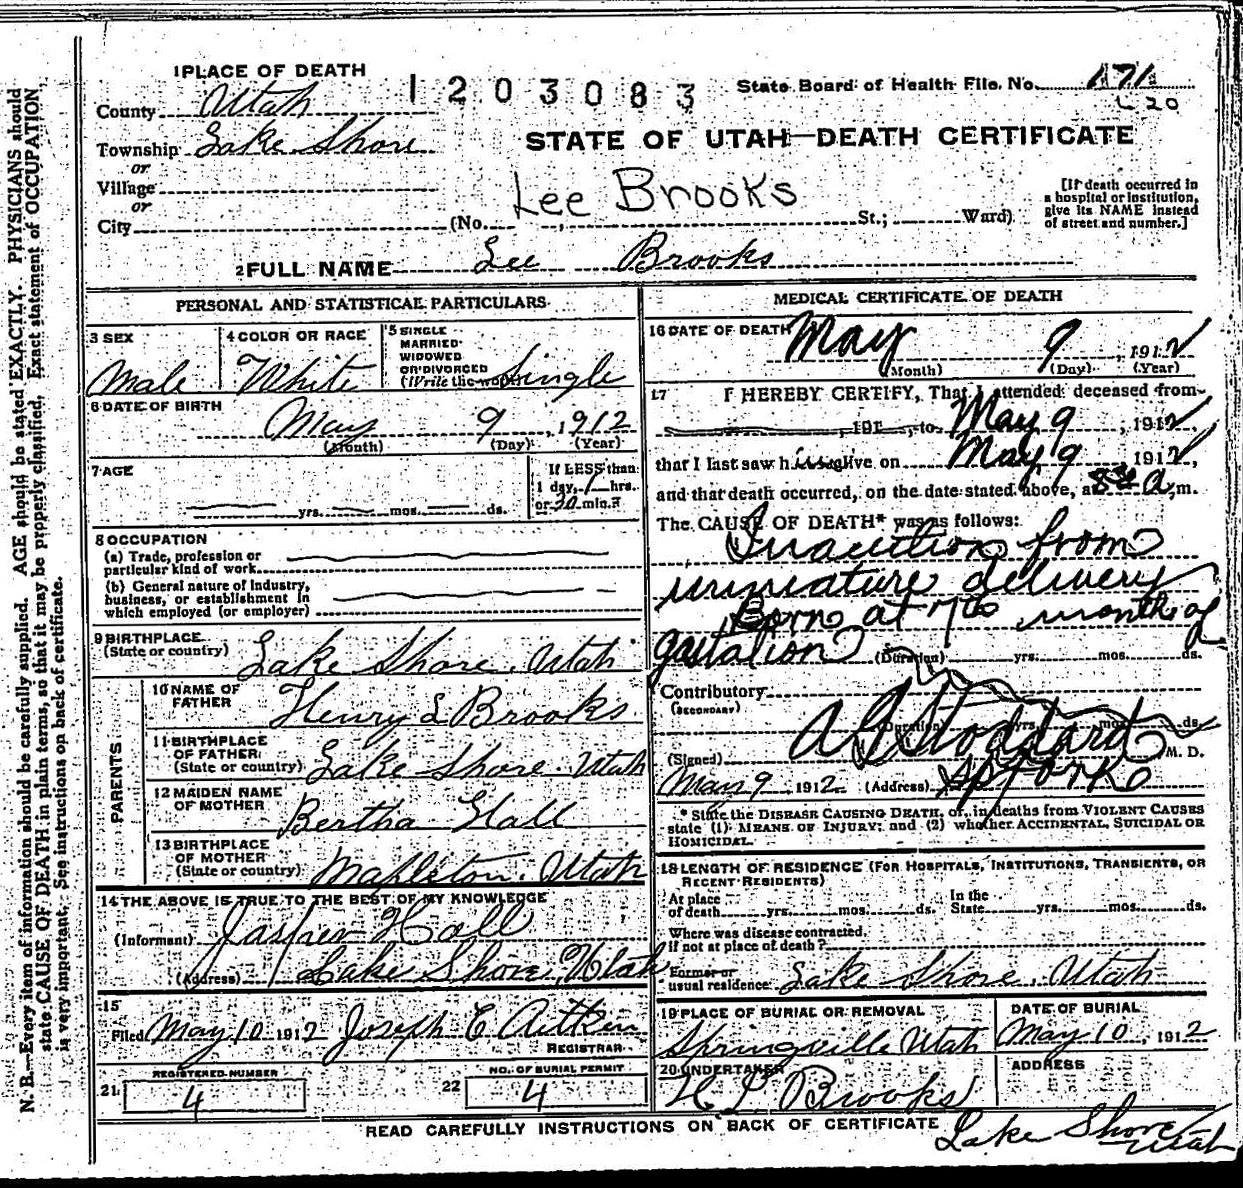 1 PLACE OF DEATH
1203083
State Board of Health File No. 171
County Utah
Township Lake Shore
or
Village
or
City
STATE OF UTAH—DEATH CERTIFICATE
Lee Brooks
(No. St.; Ward)
[If death occurred in
a hospital or institution,
give its NAME instead
of street and number.]
2 FULL NAME Lee Brooks
PERSONAL AND STATISTICAL PARTICULARS
3 SEX
Male
4 COLOR OR RACE
White
5 SINGLE
MARRIED
WIDOWED
OR DIVORCED
(Write the word) Single
6 DATE OF BIRTH
May 9, 1912
(Month) (Day) (Year)
7 AGE
yrs. mos. ds.
If LESS than
1 day, 1 hrs.
or 30 min.?
8 OCCUPATION
(a) Trade, profession or
particular kind of work
(b) General nature of industry,
business, or establishment in
which employed (or employer)
9 BIRTHPLACE
(State or country) Lake Shore, Utah
PARENTS
10 NAME OF
FATHER Henry L Brooks
11 BIRTHPLACE
OF FATHER
(State or country) Lake Shore, Utah
12 MAIDEN NAME
OF MOTHER Bertha Hall
13 BIRTHPLACE
OF MOTHER
(State or country) Mapleton, Utah
14 THE ABOVE IS TRUE TO THE BEST OF MY KNOWLEDGE
(Informant) Jasper Hall
(Address) Lake Shore, Utah
15
Filed May 10 1912 Joseph E Aitken
REGISTRAR
21 REGISTERED NUMBER
4
22 NO. OF BURIAL PERMIT
4
MEDICAL CERTIFICATE OF DEATH
16 DATE OF DEATH
May 9, 1912
(Month) (Day) (Year)
17 I HEREBY CERTIFY, That I attended deceased from
, 191 , to May 9, 1912,
that I last saw him alive on May 9 1912,
and that death occurred, on the date stated above, at 8 a.m.
The CAUSE OF DEATH* was as follows:
Inanition from
immature delivery
Born at 7th month of
gestation (Duration) yrs. mos. ds.
Contributory
(SECONDARY)
(Duration) yrs. mos. ds.
(Signed) A Stoddard M. D.
May 9, 1912 (Address) Sp Fork
* State the DISEASE CAUSING DEATH, or, in deaths from VIOLENT CAUSES
state (1) MEANS OF INJURY; and (2) whether ACCIDENTAL, SUICIDAL OR
HOMICIDAL.
18 LENGTH OF RESIDENCE (FOR HOSPITALS, INSTITUTIONS, TRANSIENTS, OR
RECENT RESIDENTS)
At place
of death yrs. mos. ds.
In the
State yrs. mos. ds.
Where was disease contracted,
if not at place of death?
Former or
usual residence Lake Shore, Utah
19 PLACE OF BURIAL OR REMOVAL
Springville Utah
DATE OF BURIAL
May 10, 1912
20 UNDERTAKER
H L Brooks
ADDRESS
Lake Shore
Utah
READ CAREFULLY INSTRUCTIONS ON BACK OF CERTIFICATE
N. B.—Every item of information should be carefully supplied. AGE should be stated EXACTLY. PHYSICIANS should
state CAUSE OF DEATH in plain terms, so that it may be properly classified. Exact statement of OCCUPATION
is very important. See instructions on back of certificate.